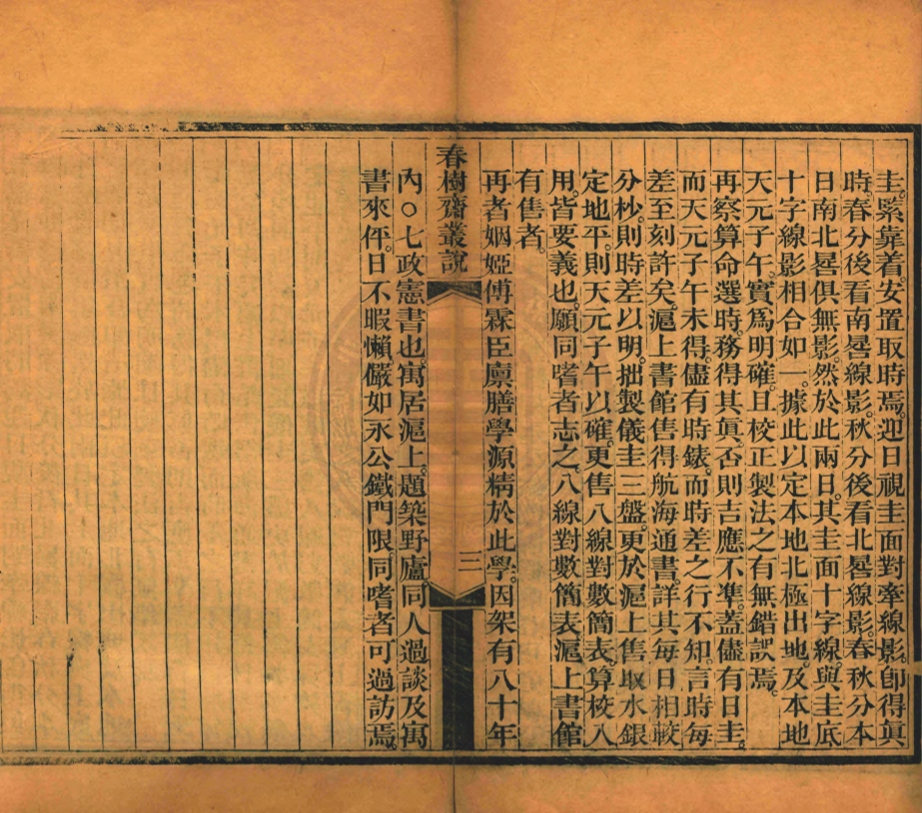 圭。緊靠着。安置取時焉。迎日視圭面對牽線影。卽得眞
時。春分後看南晷線影。秋分後看北晷線影。春秋分本
日南北晷俱無影。然於此兩日。其圭面十字線。與圭底
十字線影相合如一。據此以定本地北極出地。及本地
天元子午。實爲明確。且校正製法之有無錯誤焉。
再察算命選時。務得其眞。否則吉應不準。蓋儘有日圭。
而天元子午未得。儘有時錶。而時差之行不知。言時每
差至刻許矣。滬上書館售得航海通書。詳其每日相較
分杪。則時差以明。拙製儀圭三盤。更於滬上售取水銀
定地平。則天元子午以確。更售八線對數簡表。算校八
用。皆要義也。願同嗜者志之。八線對數簡表。滬上書館
有售者。
再者姻婭傅霖臣廩膳學源精於此學。因架有八十年
春樹齋叢說
三
內○七政憲書也。寓居滬上。題築野廬。同人過談及寓
書來伻。日不暇懶儼如永公鐵門限。同嗜者可過訪焉。